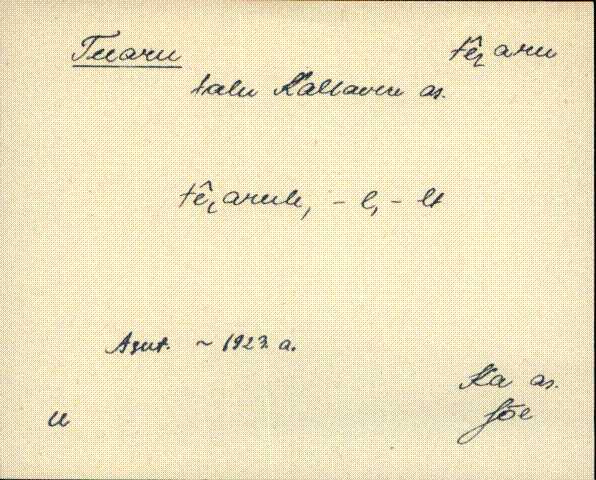 Teearu têz aru
talu Kaltavere as.
têz arule, - l, - lt
Asut. ~ 1923. a.
Ka as.
Jõe
u